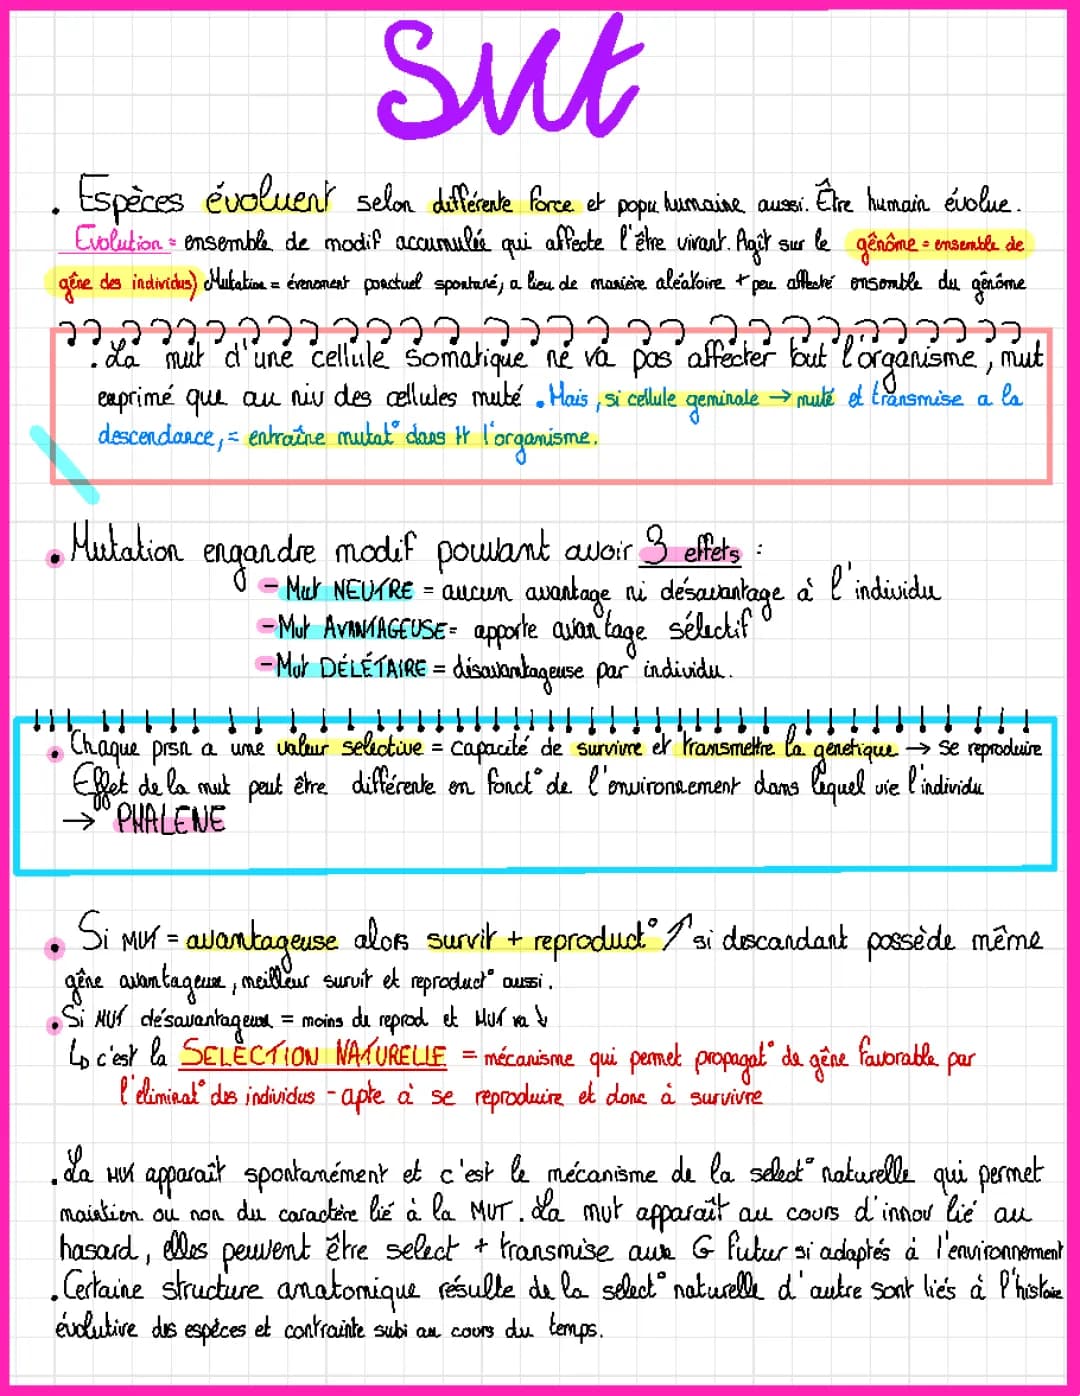 Svt
. Espèces évoluent selon différente force et popu humaine aussi. Être humain évolue.
Evolution = ensemble de modif accumulée qui affecte l'être vivant. Agit sur le génôme = ensemble de
gêne des individus) Mutation = évenoment ponctuel spontané, a lieu de manière aléatoire + peu affecté ensomble du génôme
. La mut d'une cellule somatique ne va pas affecter tout l'organisme, mut
exprimé que au niv des cellules muté . Mais, si cellule geminale → muté et transmise a la
descendance, = entraîne mutat° dans tt l'organisme.
• Mutation engandre modif pouvant avoir 3 effets :
- Mut NEUTRE = aucun avantage ni désavantage à l'individu
- Mut AVANTAGEUSE = apporte avantage sélectif
- Mut DÉLÉTAIRE = disavantageuse par individu.
• Chaque prsn a une valeur selective = capacité de survivre et transmettre la genetique → se reproduire
Effet de la mut peut être différente en fonct° de l'environnement dans lequel vie l'individu
→ PHALENE
• Si MUT = avantageuse alors survit + reproduct° ↗ si descandant possède même
gêne avantageux, meilleur survit et reproduct° aussi.
• Si MUT désavantageux = moins du reprod et MUT va ↓
↳ c'est la SELECTION NATURELLE = mécanisme qui permet propagat° de gêne favorable par
l'éliminat° des individus - apte à se reproduire et donc à survivre
. La MUT apparaît spontanément et c'est le mécanisme de la select° naturelle qui permet
maintien ou non du caractère lié à la MUT. La mut apparaît au cours d'innov lié au
hasard, elles peuvent être select + transmise aux G futur si adaptés à l'environnement
. Certaine structure anatomique résulte de la select° naturelle d'autre sont liés à l'histoire
évolutive des espéces et contrainte subi au cours du temps.